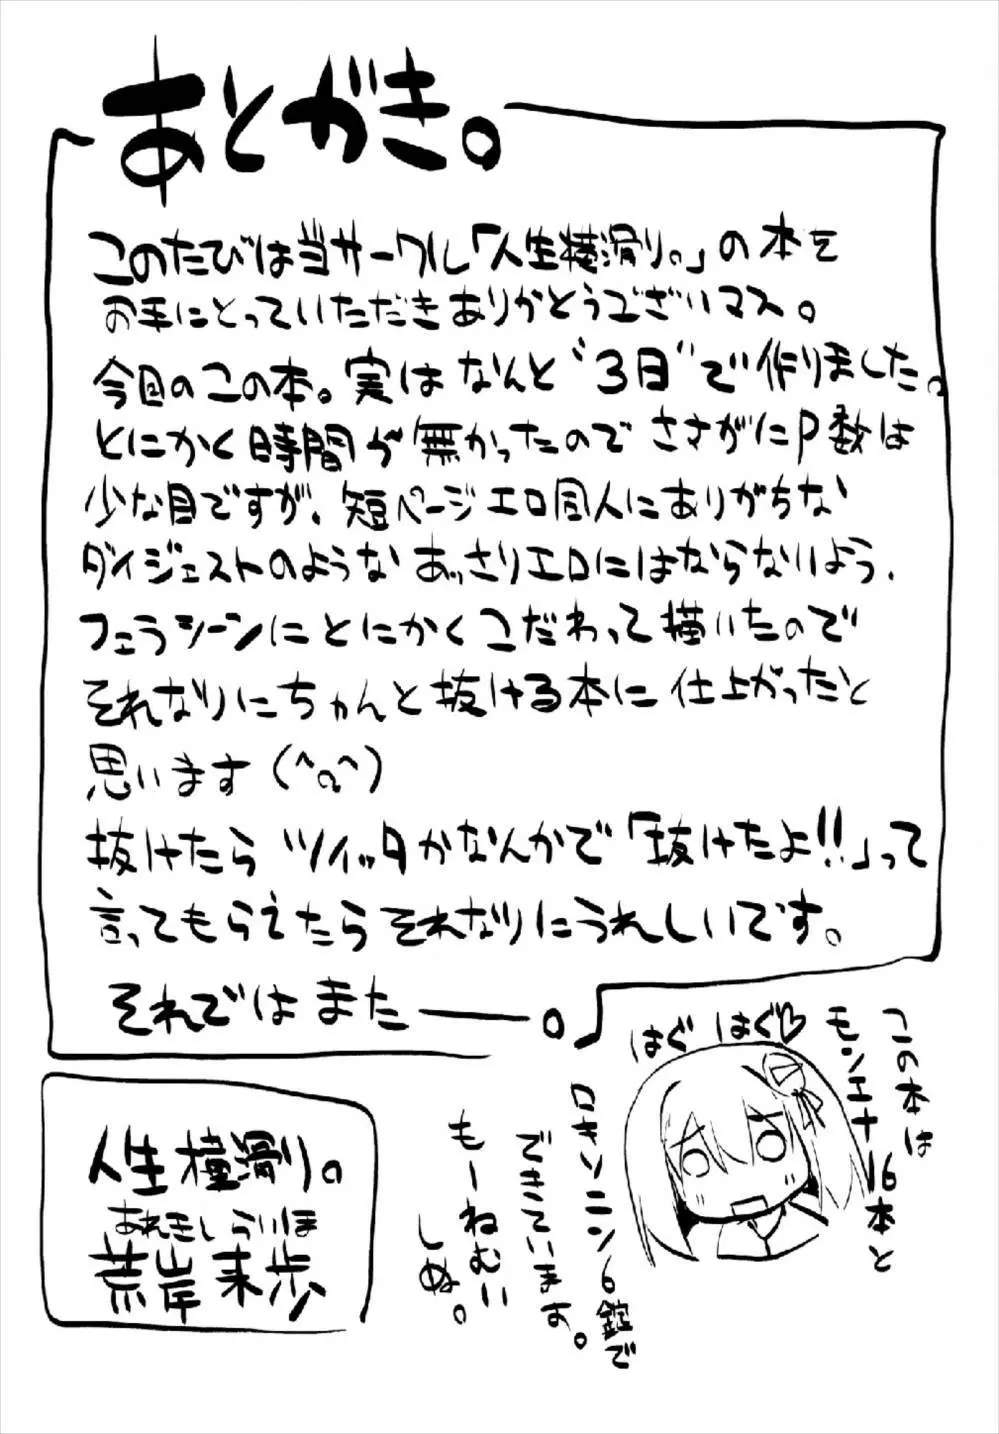 あとがき。
このたびは当サークル「人生横滑り。」の本を
お手にとっていただきありがとうございマス。
今回のこの本。実はなんと"3日"で作りました。
とにかく時間が無かったので ささがにP数は
少な目ですが、短ページエロ同人にありがちな
ダイジェストのような あっさりエロにはならないよう、
フェラシーンにとにかくこだわって描いたので
それなりにちゃんと抜ける本に仕上がったと
思います(^q^)
抜けたら ツイッタかなんかで「抜けたよ!!」って
言ってもらえたらそれなりにうれしいです。
それでは また――。
はぐ はぐ♡
この本は
モンエナ16本と
ロキソニン6錠で
できています。
もーねむい
しぬ。
人生横滑り。
あれきしらいほ
荒岸来歩